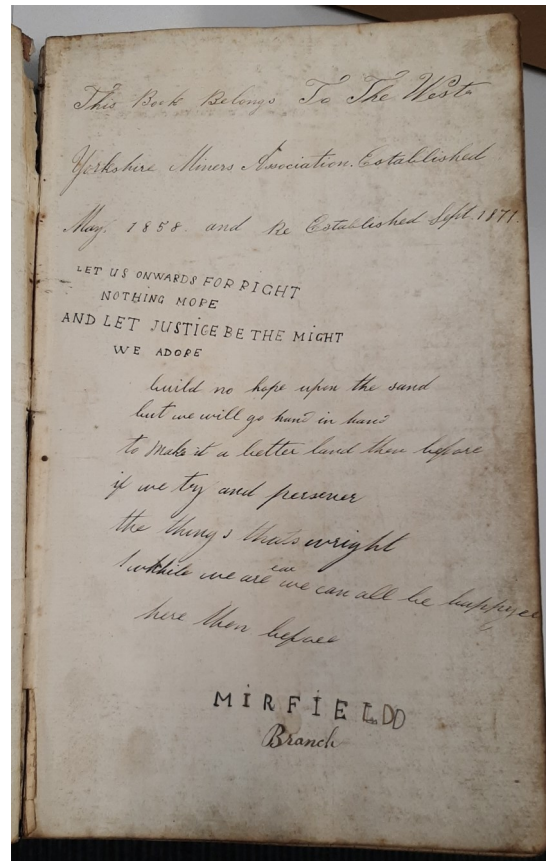 This Book Belongs To The West
Yorkshire Miners Association. Established
May. 1858. and Re Established Sept. 1877.
LET US ONWARDS FOR RIGHT
NOTHING MORE
AND LET JUSTICE BE THE MIGHT
WE ADORE
build no hope upon the sand
but we will go hand in hand
to make it a better land then before
if we try and persever
the things thats wright
while we are we can all be happy
here then before
MIRFIELDD
Branch